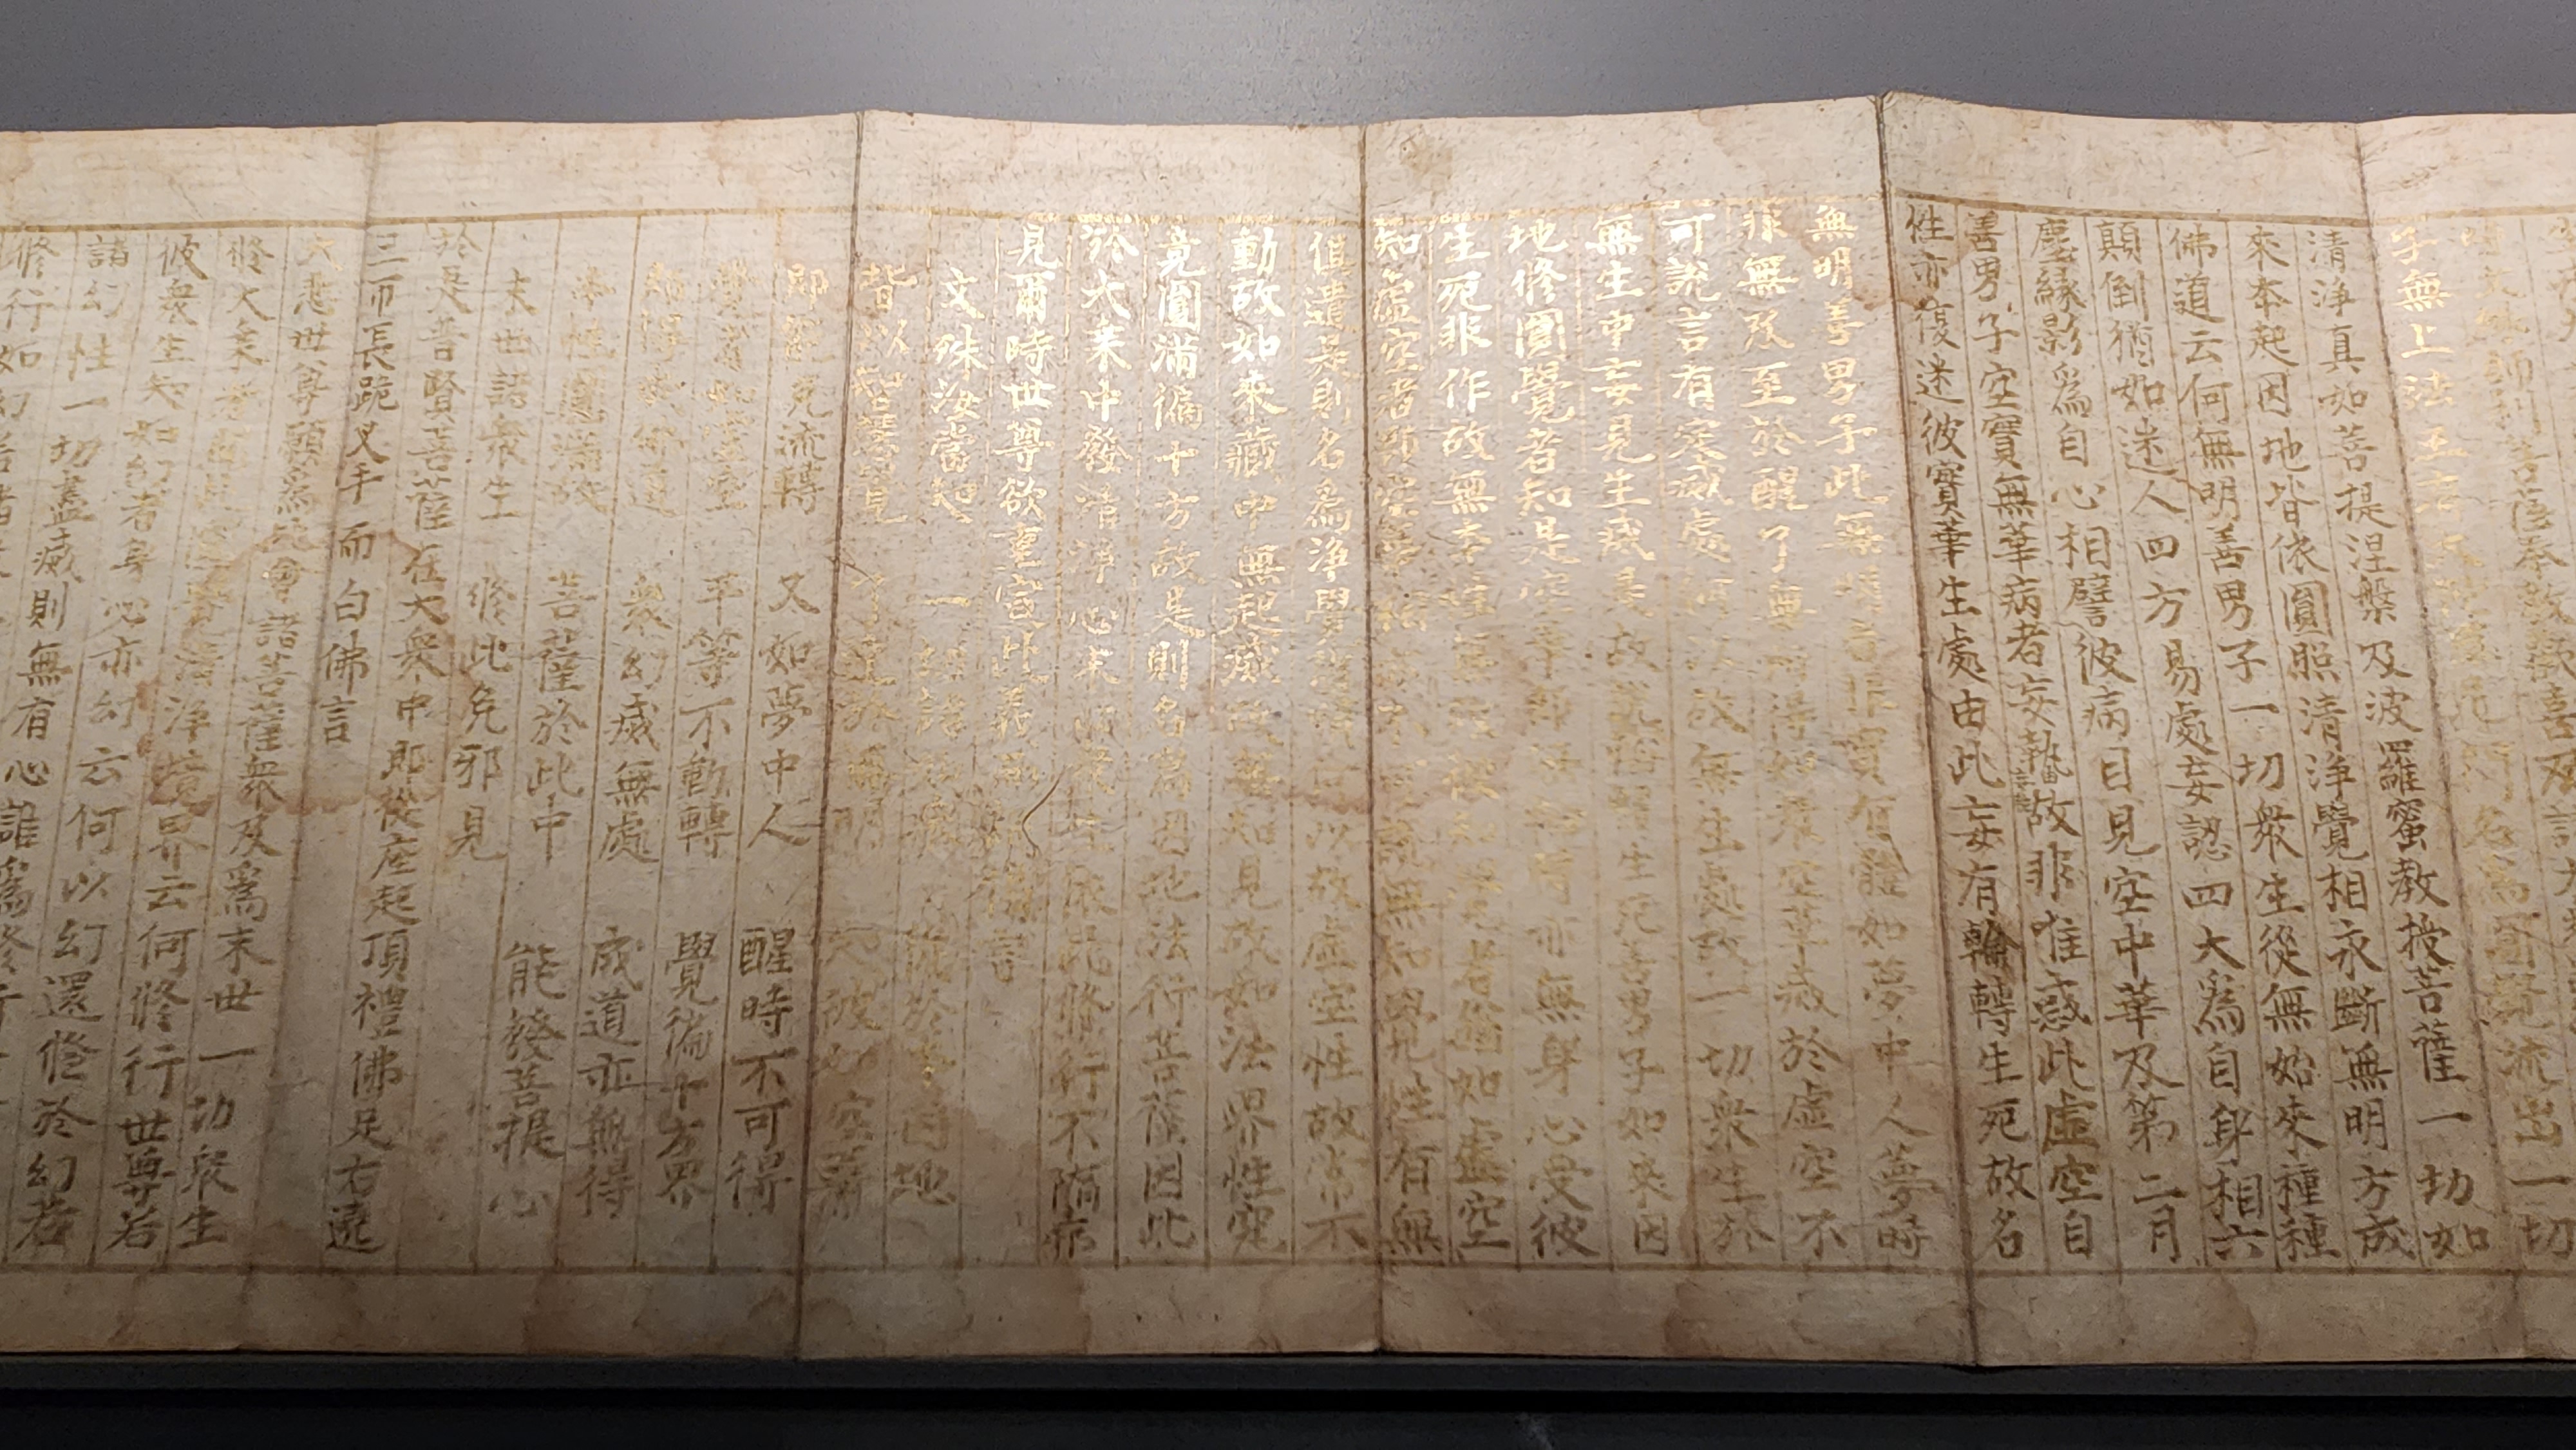 子無上法王有大陀羅尼門名爲圓覺流出一切
清淨真如菩提涅槃及波羅蜜教授菩薩一切如
來本起因地皆依圓照清淨覺相永斷無明方成
佛道云何無明善男子一切衆生從無始來種種
顛倒猶如迷人四方易處妄認四大爲自身相六
塵緣影爲自心相譬彼病目見空中華及第二月
善男子空實無華病者妄執故非唯惑此虛空自
性亦復迷彼實華生處由此妄有輪轉生死故名
無明善男子此無明者非實有體如夢中人夢時
非無及至於醒了無所得如衆空華滅於虛空不
可說言有定滅處何以故無生處故一切衆生於
無生中妄見生滅是故說輪轉生死善男子如來因
地修圓覺者知是空華即無輪轉亦無身心受彼
生死非作故無本性無故彼知覺者猶如虛空
知虛空者即空華相亦不可說無知覺性有無
俱遣是則名爲淨覺隨順何以故虛空性故常不
動故如來藏中無起滅故無知見故如法界性究
竟圓滿徧十方故是則名爲因地法行菩薩因此
於大乘中發清淨心末世衆生依此修行不墮邪
見爾時世尊欲重宣此義而說偈言
文殊汝當知 一切諸如來 從於本因地
皆以智慧覺 了達於無明 知彼如空華
即能免流轉 又如夢中人 醒時不可得
覺者如虛空 平等不動轉 覺徧十方界
即得成佛道 衆幻滅無處 成道亦無得
本性圓滿故 菩薩於此中 能發菩提心
末世諸衆生 修此免邪見
於是普賢菩薩在大衆中即從座起頂禮佛足右遶
三帀長跪叉手而白佛言
大悲世尊願爲此會諸菩薩衆及爲末世一切衆生
修大乘者聞此圓覺清淨境界云何修行世尊若
彼衆生知如幻者身心亦幻云何以幻還修於幻若
諸幻性一切盡滅則無有心誰爲修行
修行如幻若諸